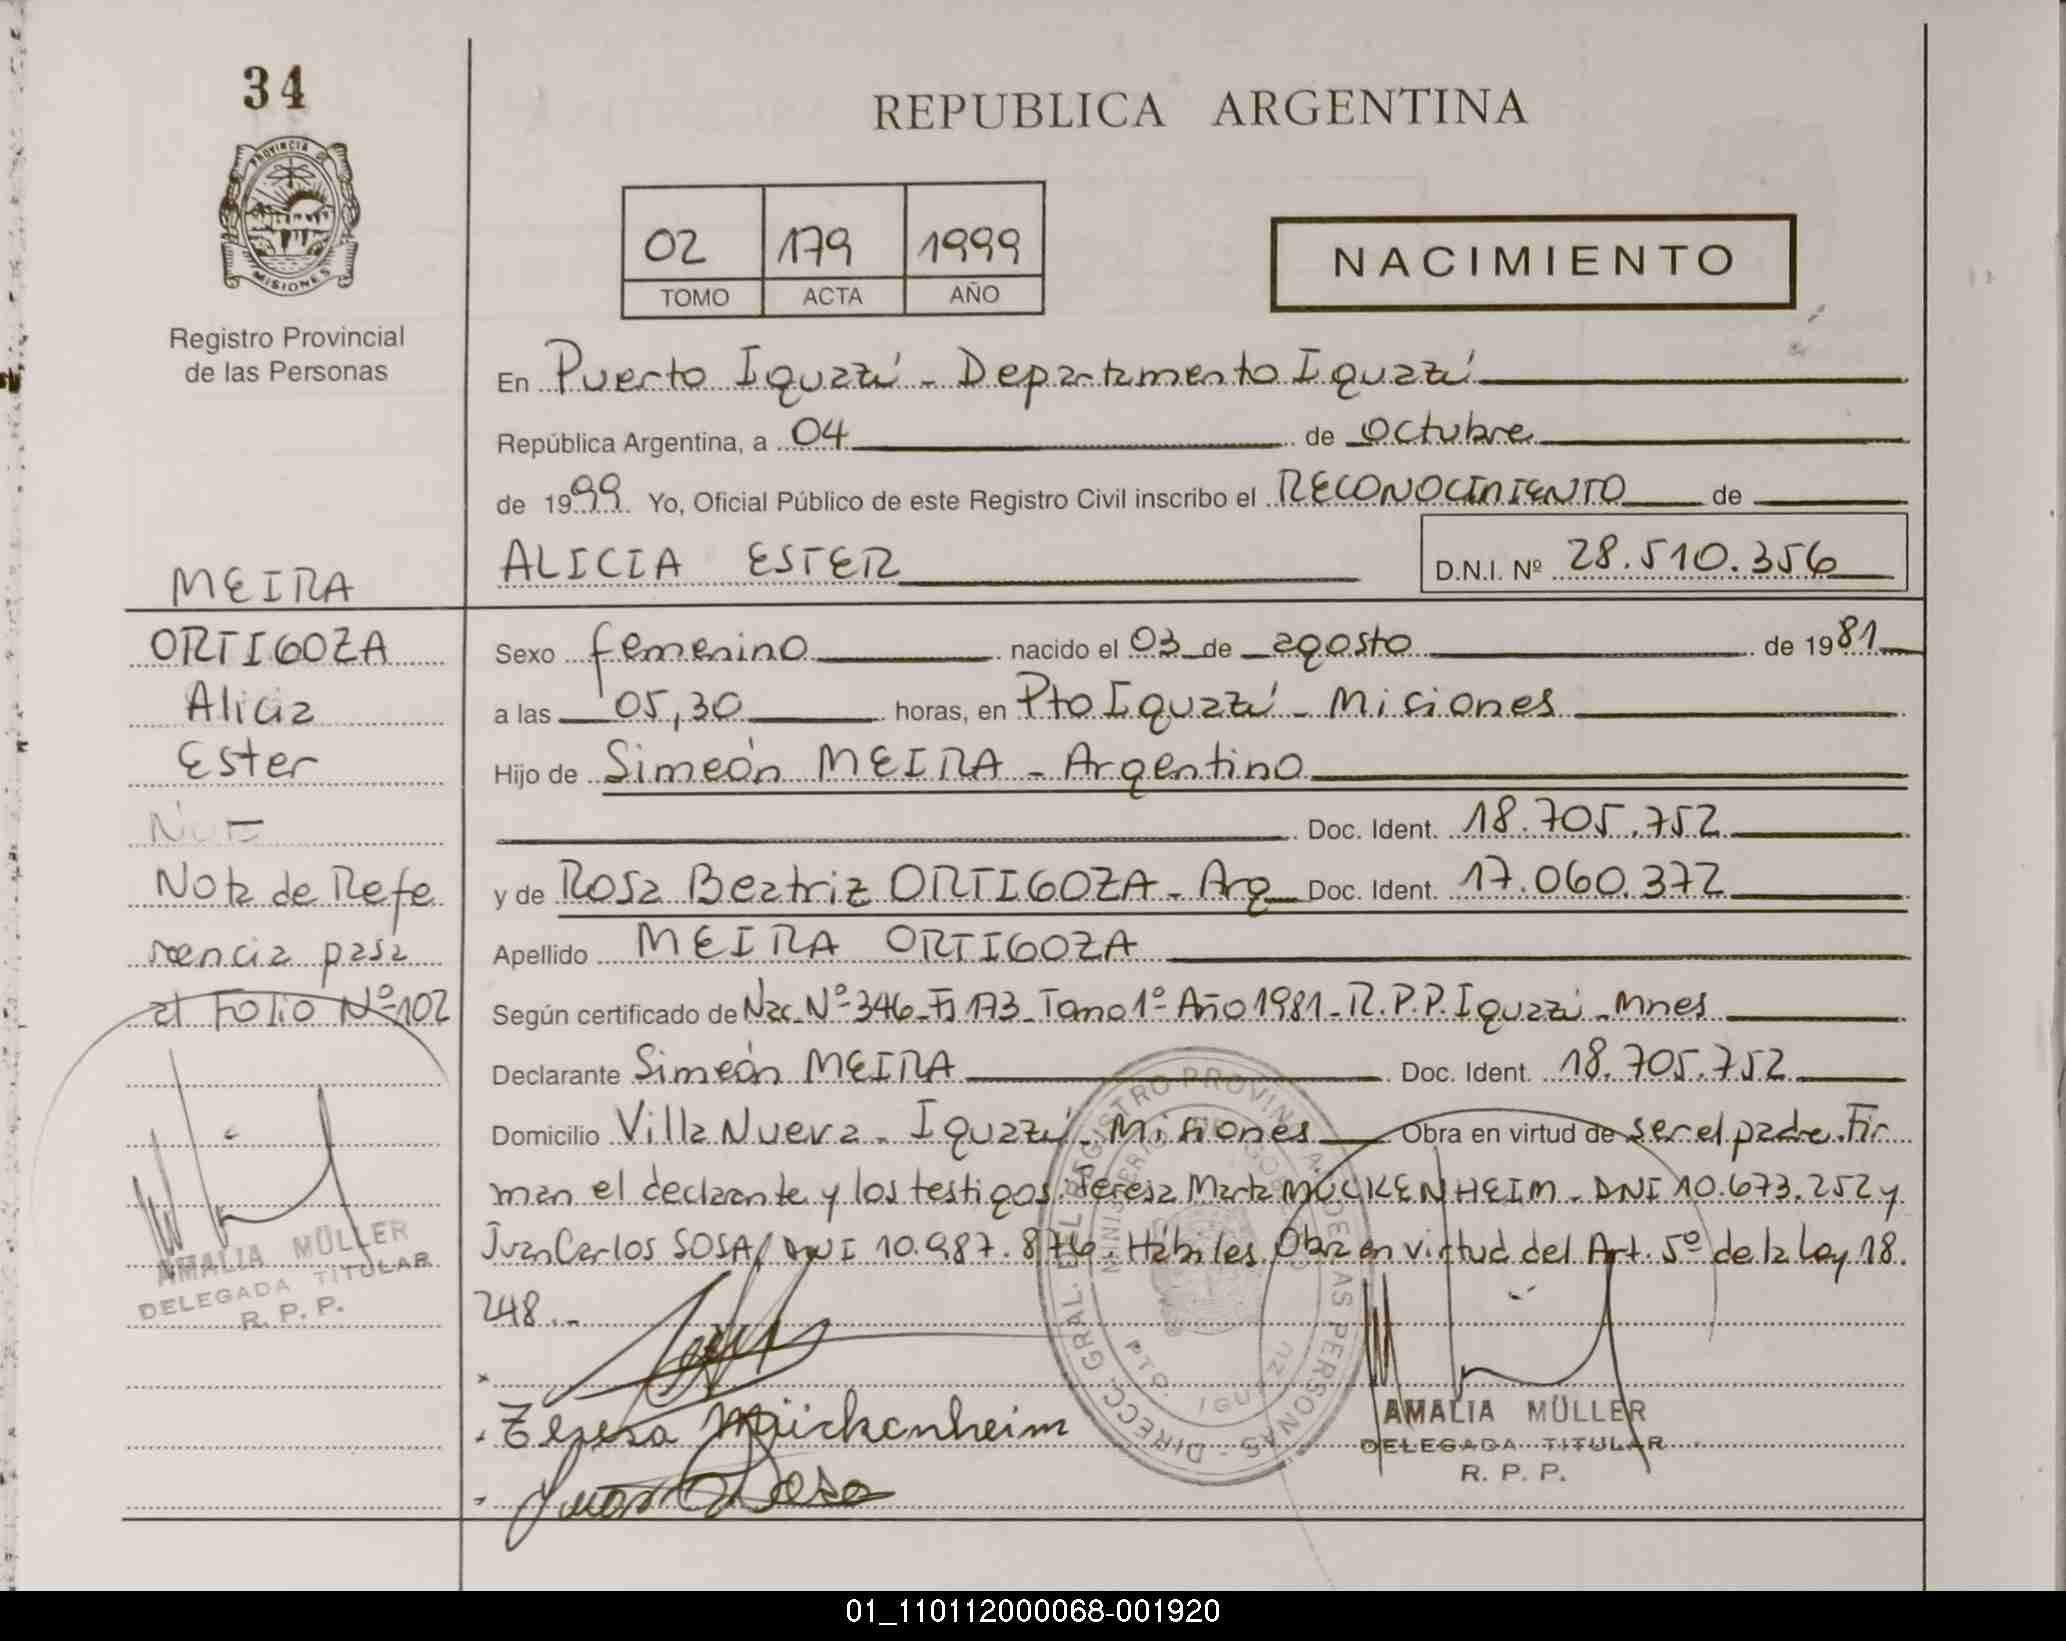 34
REPUBLICA ARGENTINA
PROVINCIA DE
MISIONES
Registro Provincial
de las Personas
02 179 1999
TOMO ACTA AÑO
NACIMIENTO
En Puerto Iguazú - Departamento Iguazú
República Argentina, a 04 de Octubre
de 1999 Yo, Oficial Público de este Registro Civil inscribo el RECONOCIMIENTO de
ALICIA ESTER D.N.I. Nº 28.510.356
MEIRA
ORTIGOZA
Alicia
Ester
Nota de Refe
rencia pasa
al FOLIO Nº 102
AMALIA MÜLLER
DELEGADA TITULAR
R. P. P.
Sexo femenino nacido el 03 de agosto de 1981
a las 05,30 horas, en Pto Iguazú - Misiones
Hijo de Simeón MEIRA - Argentino
Doc. Ident. 18.705.752
y de Rosa Beatriz ORTIGOZA - Arg Doc. Ident. 17.060.372
Apellido MEIRA ORTIGOZA
Según certificado de Nac. Nº 346 - Fj 173 - Tomo 1º Año 1981 - R.P.P. Iguazú - Mnes
Declarante Simeón MEIRA Doc. Ident. 18.705.752
Domicilio Villa Nueva - Iguazú - Misiones Obra en virtud de ser el padre. Fir
man el declarante y los testigos: Teresa Marta MÜCKENHEIM - DNI 10.673.252 y
Juan Carlos SOSA, DNI 10.987.876 - Hábiles. Obra en virtud del Art. 5º de la Ley 18.
248.-
Teresa Mückenheim
Juan Sosa
DIRECC. GRAL. DEL REGISTRO PROVINCIAL DE LAS PERSONAS
MINISTERIO DE GOBIERNO
PTO. IGUAZU
AMALIA MÜLLER
DELEGADA TITULAR
R. P. P.
01_110112000068-001920